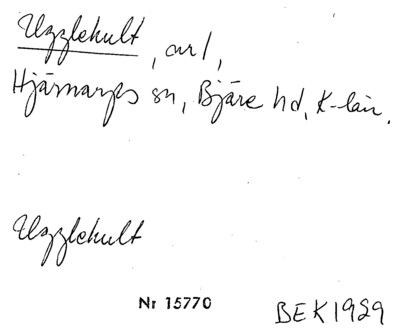 Ugglehult, avs,
Hjärnarps sn, Bjäre hd, K-län.
Ugglehult
Nr 15770
BEK1929